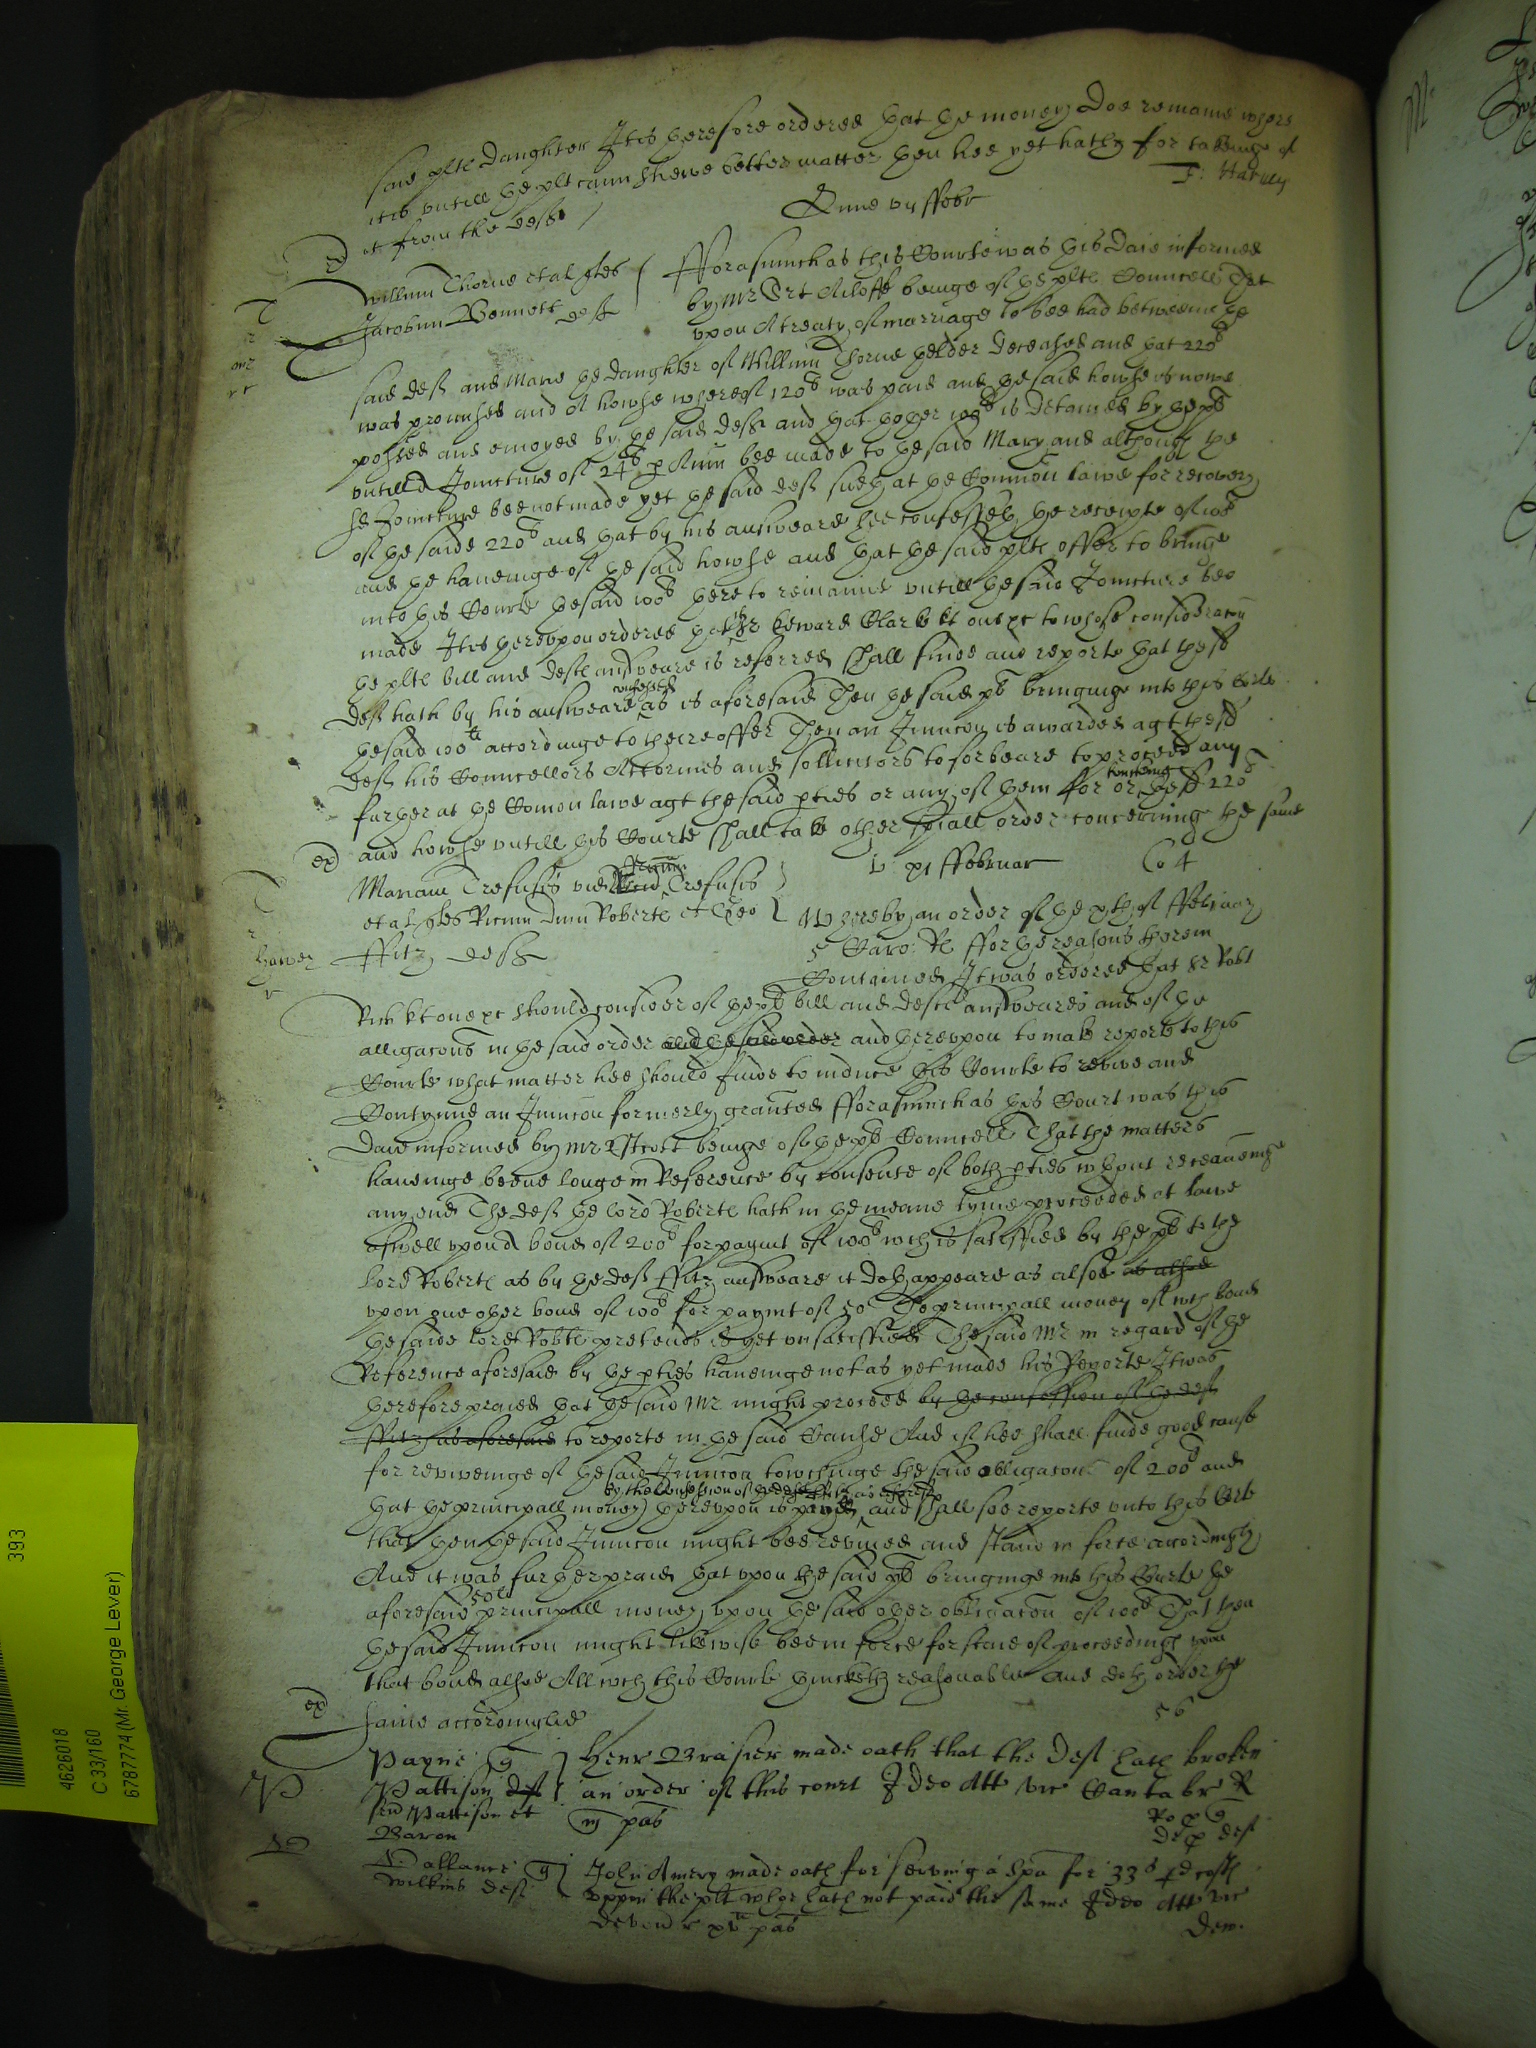 said plts daughter It is therefore ordered that the money doe remaine where
it is untill the plt cann shewe better matter then hee yet hath for takeinge of
it from the deft
F: Harvey
vij ffebr
Willm Thorne et al plts
Jacobum Bennett deft
Fforasmuch as this Courte was this daie informed
by Mr beinge of the plts Councell That
upon A treaty of marriage to bee had betweene the
said deft and Marie the daughter of Willm Thorne thelder deceased and that 220li
was promised and A howse whereof 120li was paid and the said howse is nowe
possed and enioyed by the said deft and that thother 100li is detained by the plt
untill A Joincture of 24li p Ann bee made to the said Mary and although the
sd Joincture bee not made yet the said deft sueth at the Common lawe for recovery
of the saide 220li and that by his answeare hee confesseth the receipte of
and the haveinge of the said howse and that the said plts offer to bringe
into this Courte the said 100li there to remaine untill the said Joincture bee
made It is thereupon ordered that if Sr Edward Clark kt one &c to whose consideracon
the plts bill and defts answeare is referred shall finde and reporte that the sd
deft hath by his answeare confessed as is aforesaid Then the said plt bringinge into this Corte
the said 100li accordinge to theire offer Then an Iniuncon is awarded agt the sd
deft his Councellors Attornies and sollicitors to forbeare to proceed any
further at the Comon lawe agt the said pties or any of them for or touching the sd 220li
and howse untill this Courte shall take other spiall order concerning the same
Mariam Trefusis vid Trefusis
et al plts Ricum dnm Roberts et
ffitz defts
xj ffebruar
Co 4
Whereby an order of the xth of ffebruary
5 Caro: Rs ffor the reasons therein
Contained It was ordered that Sr Robt
Rich kt one &c should consider of the plts bill and defts answeares and of the
alligacons in the said order and the said order and thereupon to make reporte to this
Courte what matter hee should finde to induce this Courte to revive and
Contynue an Iniuncon formerly graunted Fforasmuch as this Court was this
daie informed by Mr Estcott beinge of the plts Councell That the matters
haveinge beene longe in Reference by consente of both pties without receaveinge
any end The deft the lord Roberts hath in the meane tyme proceeded at lawe
aswell upon A bond of 200li for paymt of 100li wch is satisfied by the plt to the
lord Roberts as by the deft ffitz answeare it doth appeare as alsoe as alsoe
upon one other bond of 100li for paymt of 50li The principall money of wch bond
the saide lord Robts pretends is yet unsatisfied The said Mr in regard of the
Reference aforesaid by the pties haveinge not as yet made his Reporte It was
therefore praied that the said Mr might proceed by the confession of the deft
ffitz as aforesaid to reporte in the said Cause And if hee shall finde good cause
for reviveinge of the said Iniuncon towchinge the said obligacon of 200li and
that the principall money thereupon is paied by the Confession of the deft ffitz as aforesd and shall soe reporte unto this Corte
that then the said Iniuncon might bee revived and stand in force accordingly
And it was further praied that upon the said plts bringinge into this Courte the
aforesaid 50li principall money upon the said other obligacon of 100li That then
the said Iniuncon might likewise bee in force for staie of proceedings upon
that bond alsoe All wch this Courte thincketh reasonable and doth order the
same accordinglie
Payne
Pattison deft
Pattison et
Baron
Henr Brasier made oath that the deft hath broken
an order of this court Ideo Att vic Cantabr R
m pas
Dallance
Wilkins deft
John Amery made oath for serving a Spa for 33s costs
uppon the plt whoe hath not paid the same Ideo Att vic
Devon r xv pas
Dew.
393
4626018
C 33/160
6787774 (Mr. George Lever)